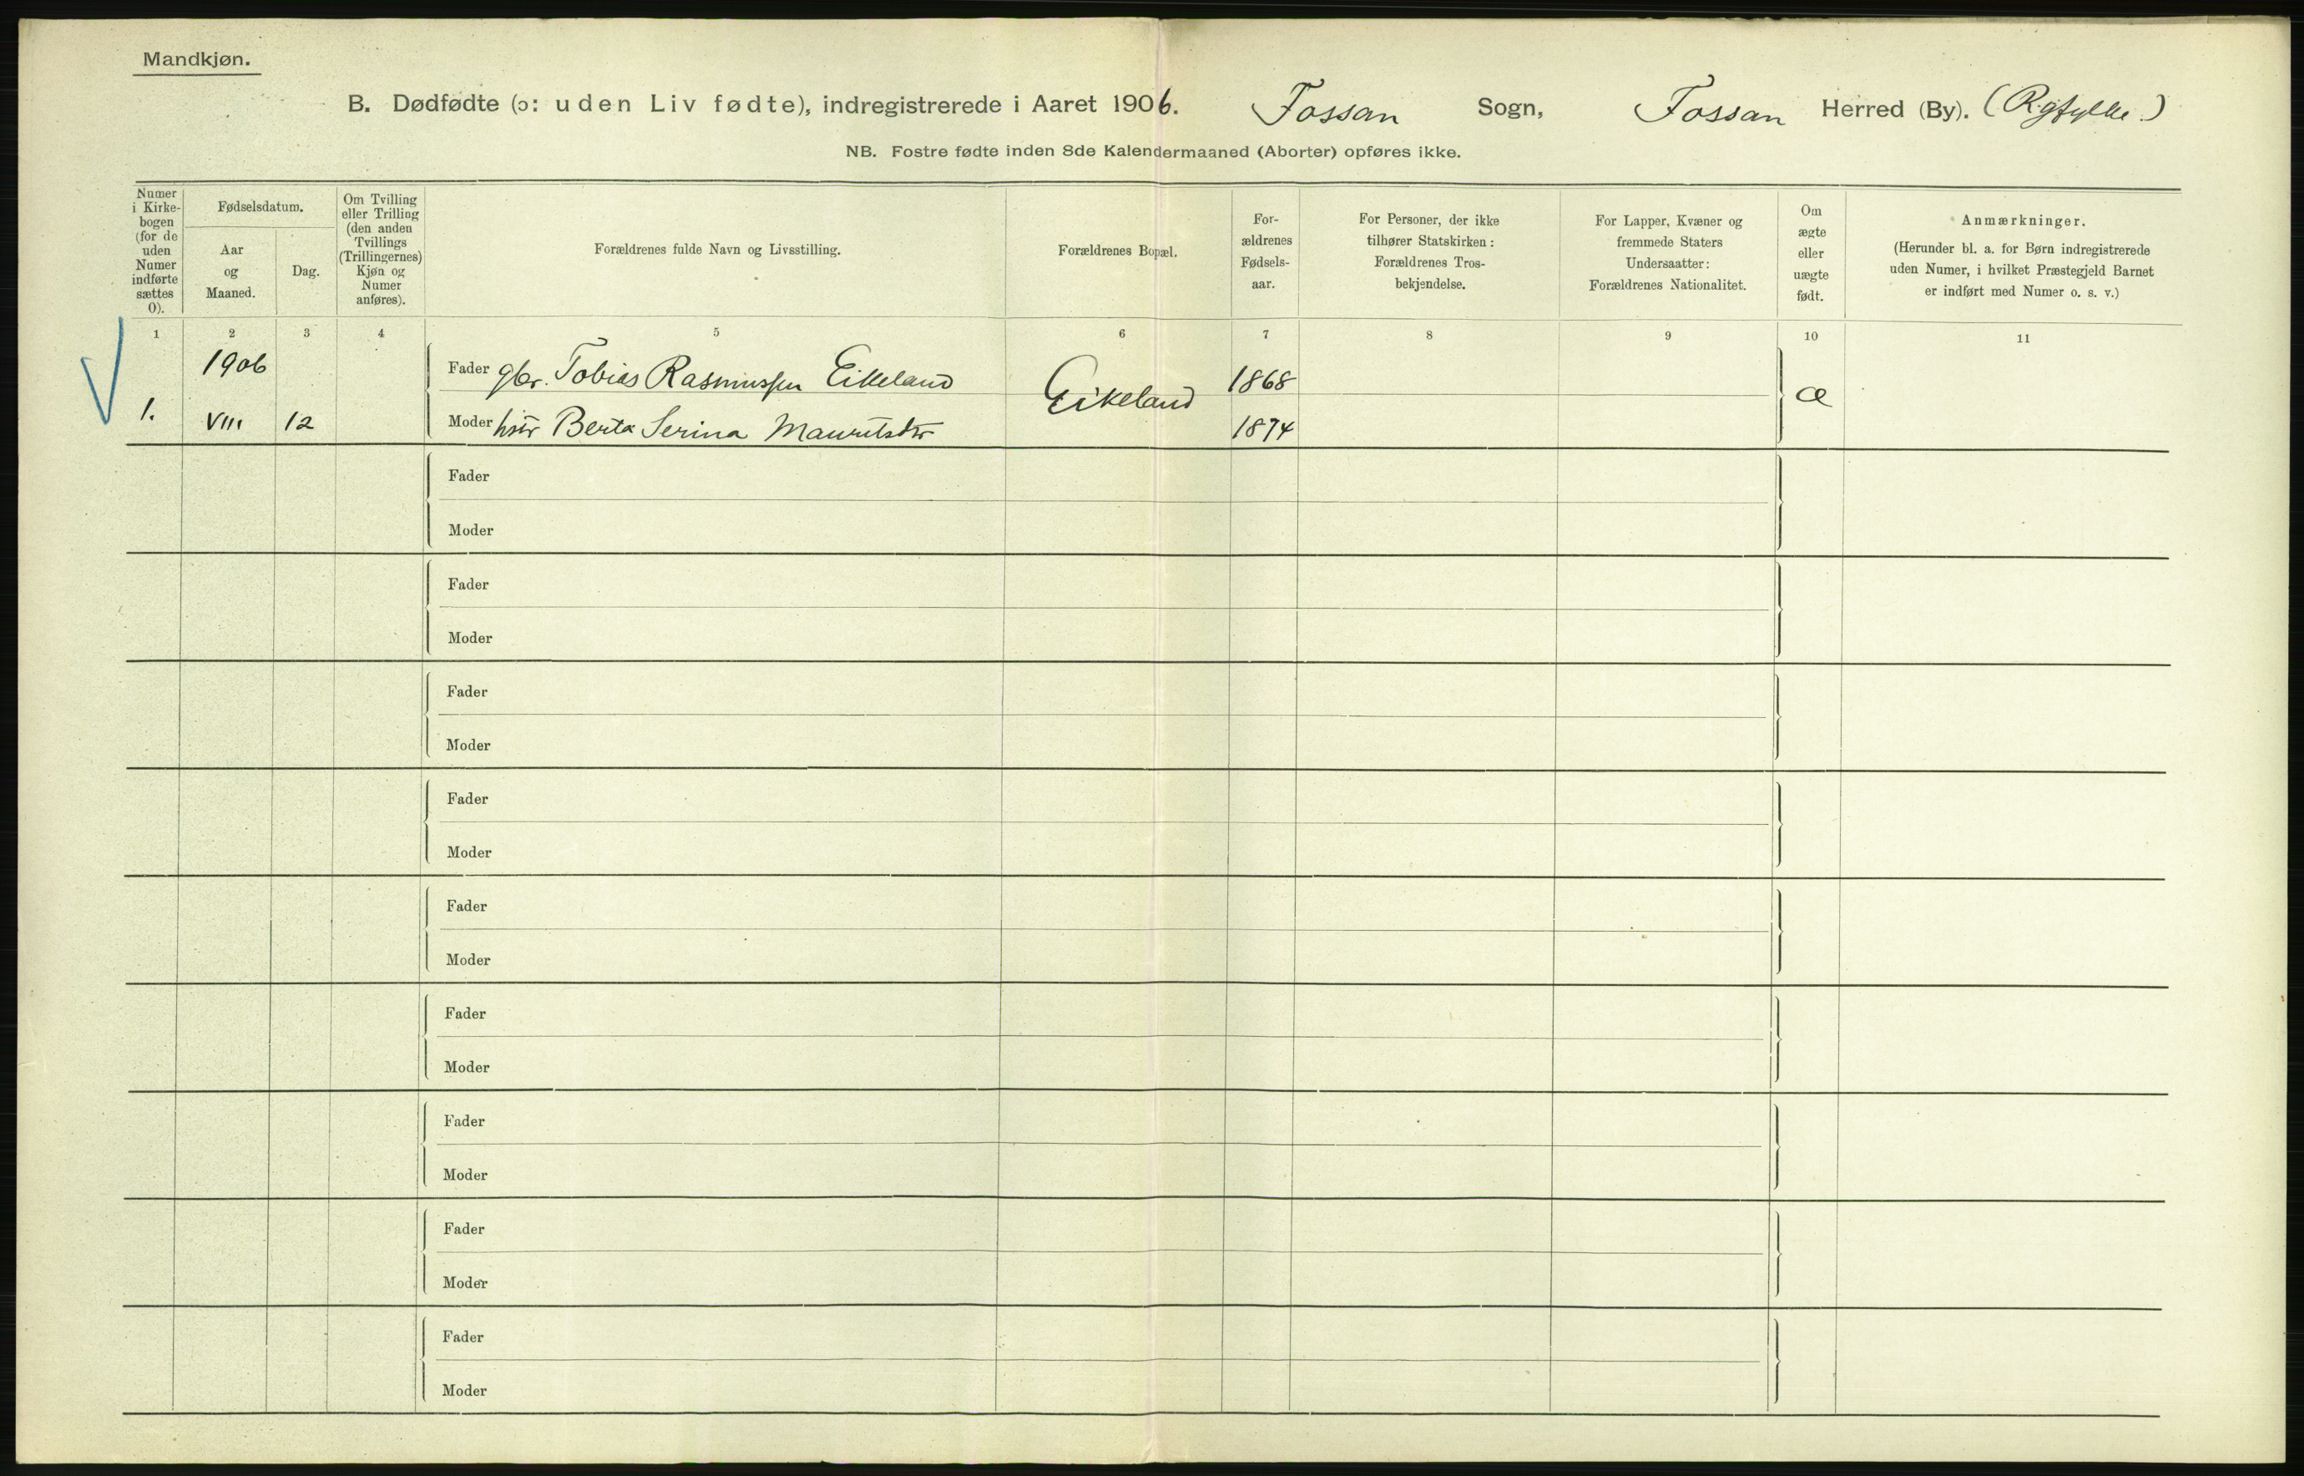 Mandkjøn.
B. Dødfødte (ɔ: uden Liv fødte), indregistrerede i Aaret 1906. Fossan Sogn, Fossan Herred (By). (R.gfylke.)
NB. Fostre fødte inden 8de Kalendermaaned (Aborter) opføres ikke.
Numer
i Kirke-
bogen
(for de
uden
Numer
indførte
sættes
0).
Fødselsdatum.
Aar
og
Maaned.
Dag.
Om Tvilling
eller Trilling
(den anden
Tvillings
(Trillingernes)
Kjøn og
Numer
anføres).
Forældrenes fulde Navn og Livsstilling.
Forældrenes Bopæl.
For-
ældrenes
Fødsels-
aar.
For Personer, der ikke
tilhører Statskirken:
Forældrenes Tros-
bekjendelse.
For Lapper, Kvæner og
fremmede Staters
Undersaatter:
Forældrenes Nationalitet.
Om
ægte
eller
uægte
født.
Anmærkninger.
(Herunder bl. a. for Børn indregistrerede
uden Numer, i hvilket Præstegjeld Barnet
er indført med Numer o. s. v.)
1 2 3 4 5 6 7 8 9 10 11
1906 Fader gbr. Tobias Rasmussen Eikeland Eikeland 1868 æ
1. VIII 12 Moder hstr Berta Serina Mauritsdtr 1874
Fader
Moder
Fader
Moder
Fader
Moder
Fader
Moder
Fader
Moder
Fader
Moder
Fader
Moder
Fader
Moder
Fader
Moder